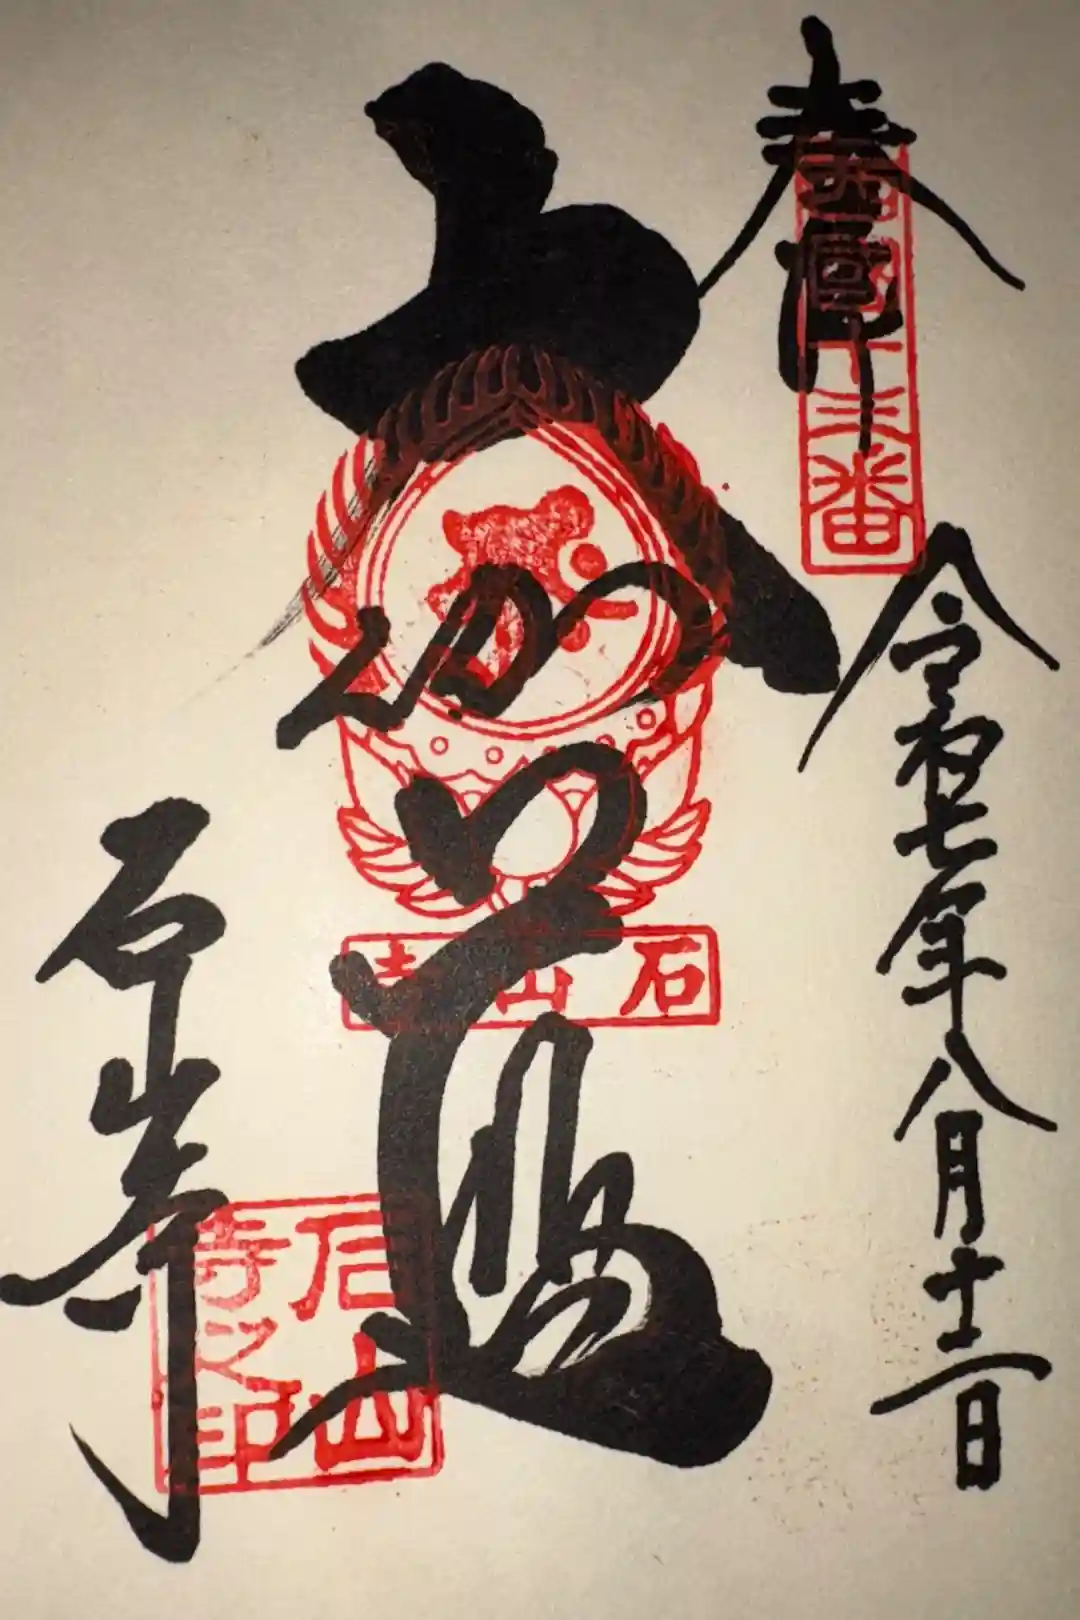 奉拝
西國十三番
令和七年八月十二日
大伽藍
石山寺
石山寺
石山
寺之印